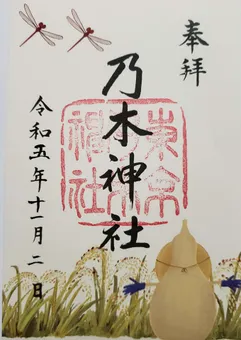 奉拝
乃木神社
東京
神社
令和五年十一月二日